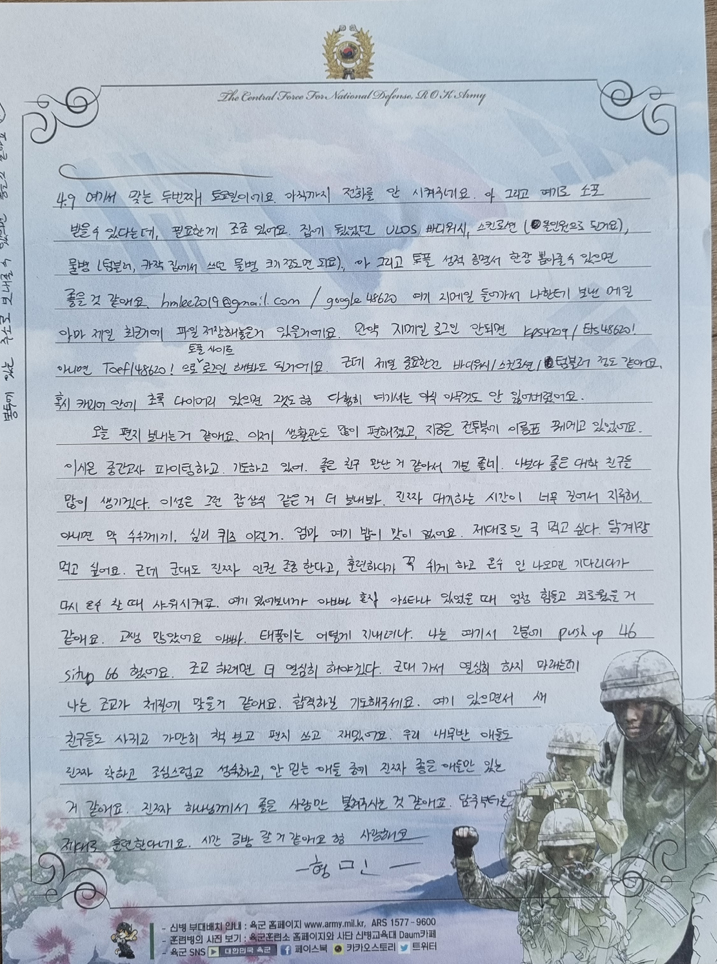 The Central Force For National Defense, R O K Army
4.9 여기서 맞는 두번째 토요일이에요. 아직까지 전화를 안 시켜주네요. 아 그리고 여기로 소포
받을 수 있다는데, 필요한게 조금 있어요. 집에 있었던 ULOS 바디워시, 스킨로션 (올인원으로 되어요),
물병 (텀블러, 카작 집에서 쓰던 물병 크기 정도면 되요), 아 그리고 토플 성적 증명서 한장 뽑아줄 수 있으면
좋을 것 같애요. hmlee2019@gmail.com / google48620 여기 지메일 들어가서 나한테 보낸 메일
아마 제일 최근에 파일 저장해놓은거 있을거에요. 만약 지메일 로그인 안되면 kps4209 / Ets48620!
토플 사이트
아니면 Toefl48620! 으로 로그인 해봐도 될거에요. 근데 제일 중요한건 바디워시/스킨로션/텀블러 정도 같아요.
혹시 캐리어 안에 초록 다이어리 있으면 그것도 좀 다행히 여기서는 아직 아무것도 안 잃어버렸어요.
오늘 편지 보내는거 같애요. 이제 생활관도 많이 편해졌고, 지금은 전투복에 이름표 꿰메고 있었어요.
이시온 중간고사 파이팅하고 기도하고 있어. 좋은 친구 만난 거 같아서 기분 좋네. 나보다 좋은 대학 친구들
많이 생기겠다. 이성은 그런 잡상식 같은거 더 보내봐. 진짜 대기하는 시간이 너무 길어서 지루해.
아니면 막 수수께끼, 심리 퀴즈 이런거. 엄마 여기 밥이 맛이 없어요. 제대로 된 국 먹고 싶다. 닭계장
먹고 싶어요. 근데 군대도 진짜 인권 존중한다고, 훈련하다가 꼭 쉬게 하고 온수 안 나오면 기다리다가
다시 온수 찰 때 샤워시켜요. 여기 있어보니까 아빠가 혼자 아스타나 있었을 때 엄청 힘들고 외로웠을 거
같애요. 고생 많았어요 아빠. 태풍이는 어떻게 지내려나. 나는 여기서 2분에 push up 46
situp 66 했어요. 조교 하려면 더 열심히 해야겠다. 군대 가서 열심히 하지 마래는데
나는 조교가 체질에 맞을거 같애요. 합격하길 기도해주세요. 여기 있으면서 새
친구들도 사귀고 가만히 책 보고 편지 쓰고 재밌어요. 우리 내무반 애들도
진짜 착하고 조심스럽고 성숙하고, 안 믿는 애들 중에 진짜 좋은 애들만 있는
거 같애요. 진짜 하나님께서 좋은 사람만 붙여주시는 것 같애요. 담주부터는
제대로 훈련한다네요. 시간 금방 갈 거 같애요 형 사랑해요
- 형 민 -
봉투에 있는 주소로 보내줄 수
- 신병 부대배치 안내 : 육군 홈페이지 www.army.mil.kr, ARS 1577 - 9600
- 훈련병의 사진 보기 : 육군훈련소 홈페이지와 사단 신병교육대 Daum카페
- 육군 SNS ▶ 대한민국 육군 페이스북 카카오스토리 트위터